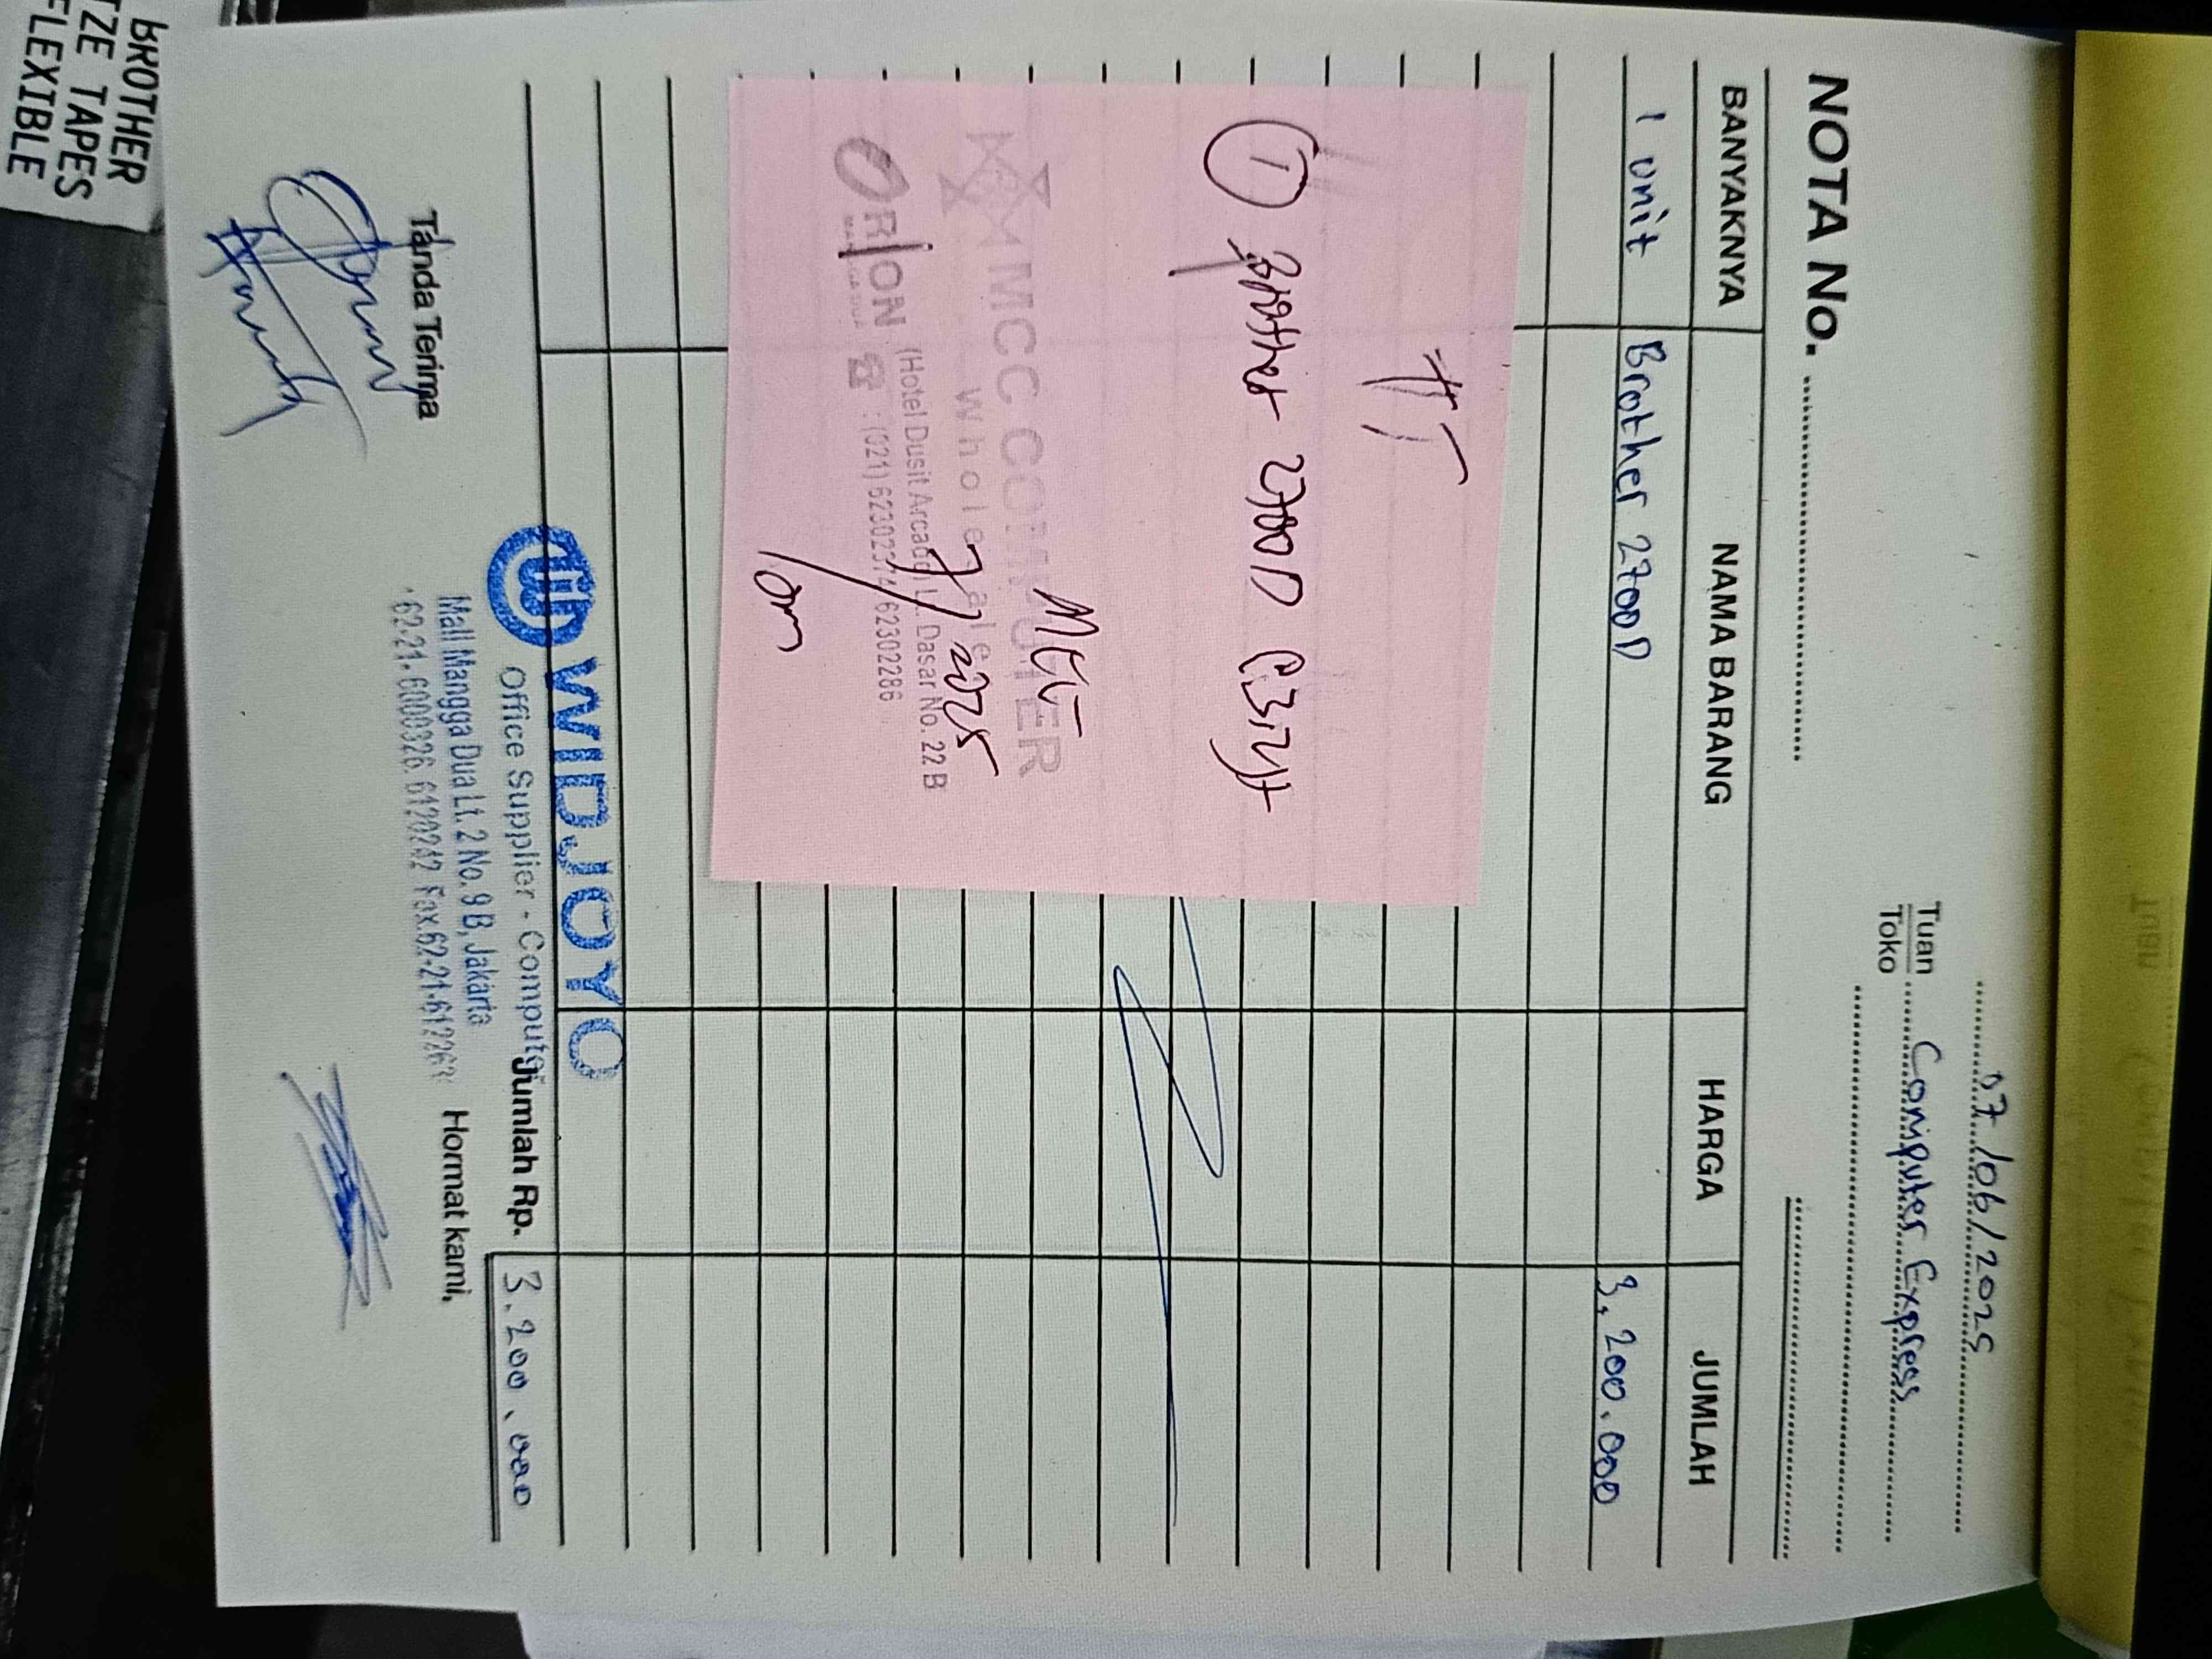 07/06/2025
Tuan Computer Express
Toko
NOTA No.
BANYAKNYA NAMA BARANG HARGA JUMLAH
1 unit Brother 2700D 3.200.000
TT
1 Brother 2700D
MCC COMPUTER
Wholesale
MCC
(Hotel Dusit Arcade) Lt. Dasar No. 22 B
7/ 2025
ORION : (021) 62302374 62302286
WIDJOYO
Office Supplier - Computer
Jumlah Rp. 3.200.000
Mall Mangga Dua Lt. 2 No. 9 B, Jakarta
Tanda Terima
Hormat kami,
BROTHER
TZE TAPES
FLEXIBLE